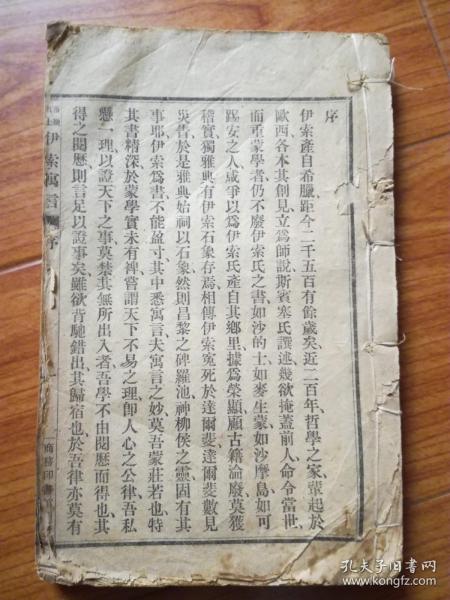 序
伊索產自希臘、距今二千五百有餘歲矣、近二百年、哲學之家、輩起於
歐西、各本其創見、立爲師說、斯賓塞氏譔述、幾欲掩蓋前人、命令當世、
而重蒙學者、仍不廢伊索氏之書、如沙的士、如麥生蒙、如沙摩島、如可
踢安之人、咸爭以爲伊索氏產自其鄉里、據爲榮顯、顧古籍論廢、莫獲
稽實、獨雅典有伊索石象存焉、相傳伊索寃死於達爾斐、達爾斐數見
災眚、於是雅典始祠以石象、然則昌黎之碑羅池、神柳侯之靈、固有其
事耶、伊索爲書、不能盈寸、其中悉寓言、夫寓言之妙、莫吾蒙莊若也、特
其書精深、於蒙學實未有裨、嘗謂天下不易之理、即人心之公律、吾私
懸一理、以證天下之事、莫禁其無所出入者、吾學不由閱歷而得也、其
得之閱歷、則言足以證事矣、雖欲背馳錯出、其歸宿也、於吾律亦莫有
伊索寓言 序
商務印
孔夫子旧书网
www.kongfz.com